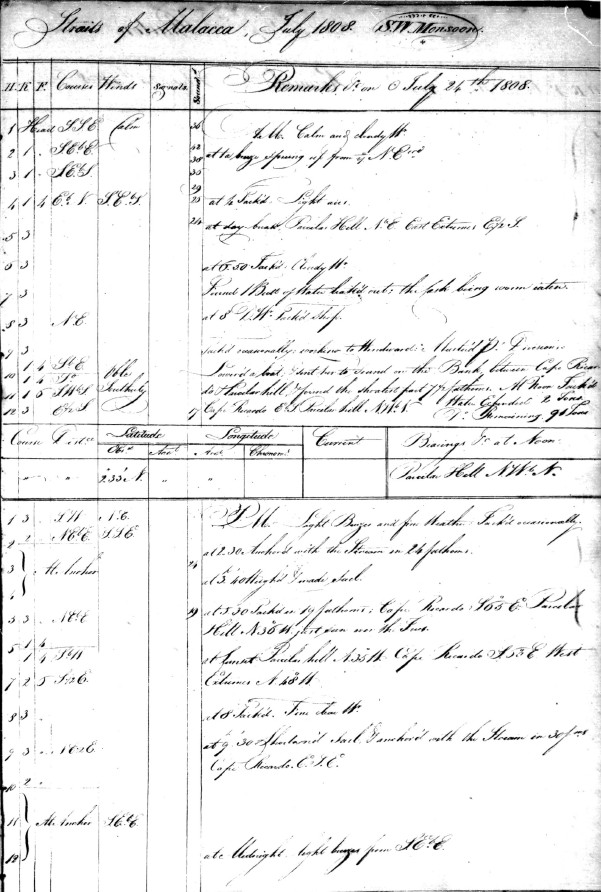 Straits of Malacca, July 1808. S.W. Monsoon.
H. K. F. Courses Winds Signals Remarks &c on July 24th 1808.
1 Head S S E Calm 36 A M. Calm and cloudy Wr
2 1 " SEbE 32
38 at 1 a breeze sprung up from ye N. Eward
3 1 " SEbS. 35
29
4 1 4 EbN. S.EbS. 23 at 4 Tack'd. Light airs
24 at day break Parcelar Hill N.E. East Extremes EbS.
5 3
6 3 at 5.50 Tack'd. Cloudy Wr
7 3 Found 1 Butt of Water leak'd out; the cask being worm eaten.
8 3 N.E. at 8 Do Wr Tack'd Ship.
9 3 Tack'd occasionally, working to Windward: Muster'd Divisions
10 1 4 SbE Lower'd a boat, & sent her to sound on the Bank between Cape Ricar
1 4 Do
11 1 5 SWbS Southerly do & Parcelar hill, & found the shoalest part 7 fathoms. At Noon Tack'd
12 3 EbS 17 Cape Ricardo EbS Parcelar hill NWbN Water Expended 2 Tons
Do Remaining 96 Tons
Course Distce Latitude Longitude Current Bearings &c at Noon
Obsd Acct Acct Chronomr
" " 2.55 N. " " Parcelar Hill NWbN.
1 3 S.W N.E. P M. Light Breezes and fine Weather. Tack'd occasionally.
2 2 NEbE S.S.E.
at 2.30 Anchor'd with the Stream in 24 fathoms.
3 At Anchor 24
at 3.40 Weigh'd & made Sail.
3 3 NEbE 19 at 5.30 Tack'd in 19 fathoms; Cape Ricardo S65°E Parcelar
Hill N.36 W. just seen over the Trees.
5 1 4
1 4 at Sunset Parcelar hill N.35 W Cape Ricardo S.53 E West
7 2 5 Extremes N 48 W
8 3 at 8 Tack'd. Fine clear Wr
9 3 " NEbE at 9.30 Shorten'd Sail, & anchor'd with the Stream in 30 fms
Cape Ricardo E.S.E.
10 2 "
11 At Anchor SEbE
12 at Midnight light breezes from SEbE.